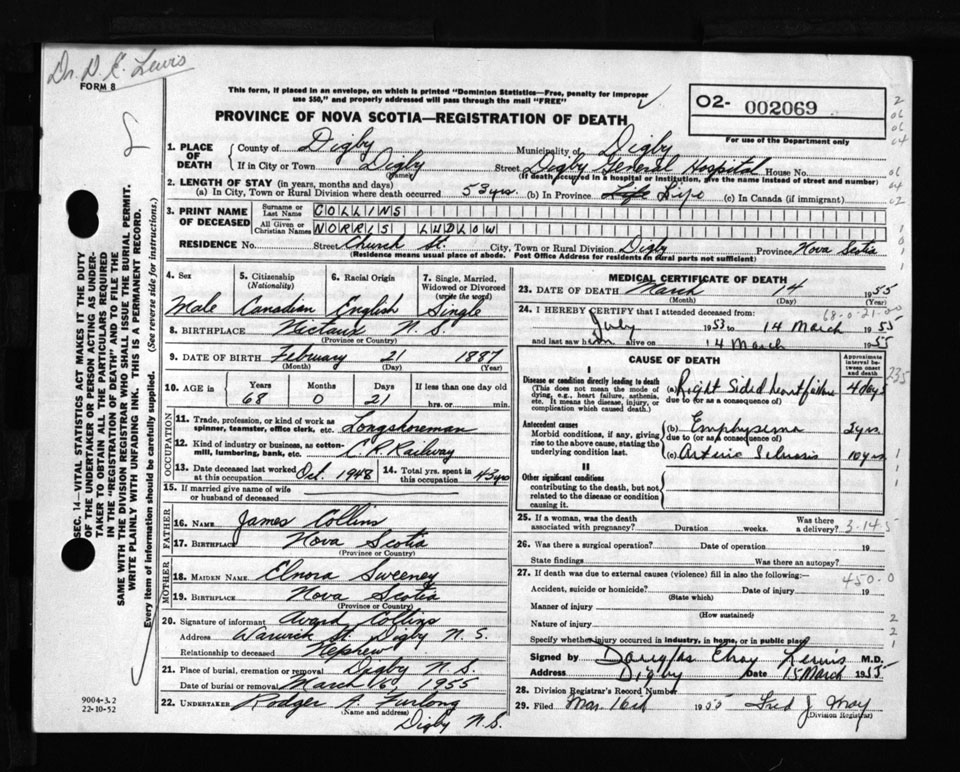 Dr. D. E. Lewis
FORM 8
This form, if placed in an envelope, on which is printed "Dominion Statistics—Free, penalty for improper
use $50," and properly addressed will pass through the mail "FREE"
PROVINCE OF NOVA SCOTIA—REGISTRATION OF DEATH
02- 002069
For use of the Department only
1. PLACE OF DEATH
County of Digby Municipality of Digby
If in City or Town Digby (Name) Street Digby General Hospital House No.
(If death occurred in a hospital or institution, give the name instead of street and number)
2. LENGTH OF STAY (in years, months and days)
(a) In City, Town or Rural Division where death occurred 53 yrs. (b) In Province Life Life (c) In Canada (if immigrant)
3. PRINT NAME OF DECEASED
Surname or Last Name COLLINS
All Given or Christian Names NORRIS LUDLOW
RESIDENCE No. Street Church St. City, Town or Rural Division Digby Province Nova Scotia
(Residence means usual place of abode. Post Office Address for residents in rural parts not sufficient)
4. Sex Male
5. Citizenship (Nationality) Canadian
6. Racial Origin English
7. Single, Married, Widowed or Divorced (write the word) Single
8. BIRTHPLACE Nictaux N.S.
(Province or Country)
9. DATE OF BIRTH February 21 1887
(Month) (Day) (Year)
10. AGE in Years 68 Months 0 Days 21 If less than one day old
hrs. or min.
OCCUPATION
11. Trade, profession, or kind of work as
spinner, teamster, office clerk, etc. Longshoreman
12. Kind of industry or business, as cotton-
mill, lumbering, bank, etc. C.P. Railway
13. Date deceased last worked at this occupation Oct. 1948 14. Total yrs. spent in this occupation 43 yrs
15. If married give name of wife
or husband of deceased
FATHER
16. NAME James Collins
17. BIRTHPLACE Nova Scotia
(Province or Country)
MOTHER
18. MAIDEN NAME Elnora Sweeney
19. BIRTHPLACE Nova Scotia
(Province or Country)
20. Signature of informant Avard Collins
Address Warwick St. Digby N.S.
Relationship to deceased Nephew
21. Place of burial, cremation or removal Digby N.S.
Date of burial or removal March 16, 1955
22. UNDERTAKER Rodger A. Furlong
(Name and address)
Digby N.S.
MEDICAL CERTIFICATE OF DEATH
23. DATE OF DEATH March 14 1955
(Month) (Day) (Year)
24. I HEREBY CERTIFY that I attended deceased from:
68-0-21-00
July 1953 to 14 March 1955
and last saw him alive on 14 March 1955
CAUSE OF DEATH
Approximate interval between onset and death
I
Disease or condition directly leading to death
(This does not mean the mode of
dying, e.g., heart failure, asthenia,
etc. It means the disease, injury, or
complication which caused death.)
(a) Right Sided heart failure 4 days
due to (or as a consequence of)
Antecedent causes
Morbid conditions, if any, giving
rise to the above cause, stating the
underlying condition last.
(b) Emphysema 2 yrs.
due to (or as a consequence of)
(c) Arterio Sclerosis 10 yrs.
II
Other significant conditions
contributing to the death, but not
related to the disease or condition
causing it.
25. If a woman, was the death
associated with pregnancy? Duration weeks. Was there a delivery?
3-14-5
26. Was there a surgical operation? Date of operation 19
State findings Was there an autopsy?
27. If death was due to external causes (violence) fill in also the following:
450-0
Accident, suicide or homicide? Date of injury 19
(State which)
Manner of injury
(How sustained)
Nature of injury
Specify whether injury occurred in industry, in home, or in public place
Signed by Douglas Lewis M.D.
Address Digby Date 15 March 1955
28. Division Registrar's Record Number
29. Filed Mar. 16th 1955 Fred J.
(Division Registrar)
SEC. 14—VITAL STATISTICS ACT MAKES IT THE DUTY
OF THE UNDERTAKER OR PERSON ACTING AS UNDER-
TAKER TO OBTAIN ALL THE PARTICULARS REQUIRED
IN THE "REGISTRATION OF DEATH" AND TO FILE THE
SAME WITH THE DIVISION REGISTRAR WHO SHALL ISSUE THE BURIAL PERMIT.
WRITE PLAINLY WITH UNFADING INK. THIS IS A PERMANENT RECORD.
Every item of information should be carefully supplied. (See reverse side for instructions.)
9004-3.2
22-10-52